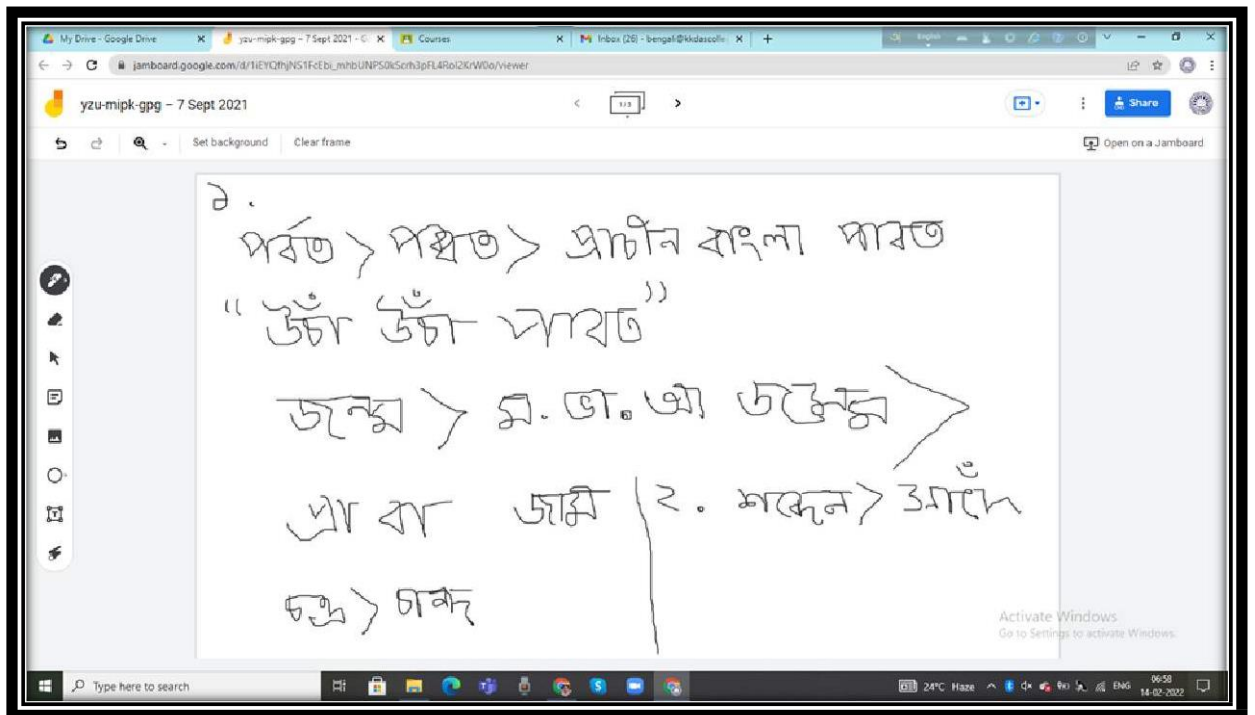 My Drive - Google Drive
yzu-mipk-gpg – 7 Sept 2021 - G
Courses
Inbox (26) - bengali@kkdascolle
jamboard.google.com/d/1iEYQfhjNS1FcEbi_mhbUNPS0kScrh3pFL4Rol2KrW0o/viewer
yzu-mipk-gpg – 7 Sept 2021
1/3
Share
Set background Clear frame
Open on a Jamboard
১.
পর্বত > পব্বত > প্রাচীন বাংলা পাবত
"উঁচা উঁচা পাবত"
জন্ম > ম. ভা. আ জম্মে >
প্রা বা জামে
২. শব্দেন > সাদেঁ
চন্দ্র > চান্দ
Activate Windows
Go to Settings to activate Windows.
Type here to search
24°C Haze
ENG
06:58
14-02-2022